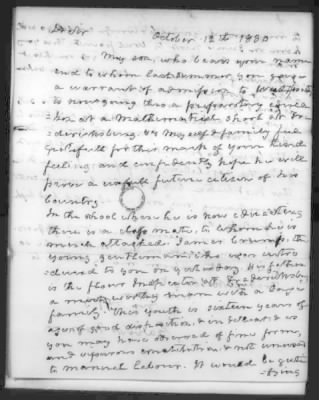 D Sir October 12th 1830
My son, who bears your name
and to whom last summer you gave
a warrant of admission to West point,
is now going thro a preparatory
at a Mathematical School at
dericksburg. My self & family feel
gratefull for this mark of your kind
feeling and confidently hope he will
prove a usefull future citizen of his
Country
In the school where he is now educating
there is a class mate, to whom he is
much attached. James Crump, the
young gentleman who was intro
duced to you on yesterday His father
is the flour Inspector at Fredericksburg
a most worthy man with a large
family. This youth is sixteen years of
age of good disposition, & intellect & as
you may have observed of fine form,
and vigorous constitution & not unused
to manual labour. It would be grati
fying